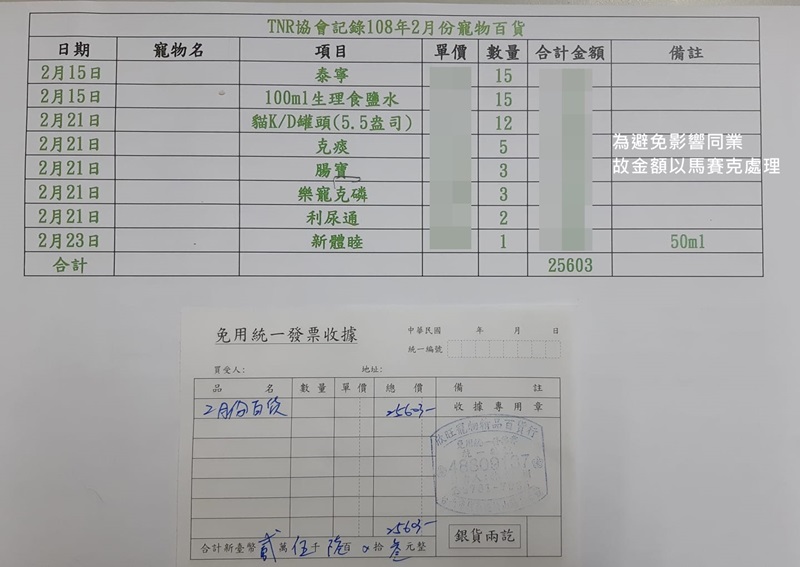 TNR協會記錄108年2月份寵物百貨
日期 寵物名 項目 單價 數量 合計金額 備註
2月15日 泰寧 15
2月15日 100ml生理食鹽水 15
2月21日 貓K/D罐頭(5.5盎司) 12
2月21日 克痰 5
2月21日 腸寶 3
2月21日 樂寵克磷 3
2月21日 利尿通 2
2月23日 新體睦 1 50ml
合計 25603
為避免影響同業
故金額以馬賽克處理
免用統一發票收據
中華民國 年 月 日
統一編號
買受人: 地址:
品名 數量 單價 總價 備註
2月份百貨 25603- 收據專用章
寵物用品百貨行
25603-
合計新臺幣貳萬伍千陸百0拾叁元整
銀貨兩訖